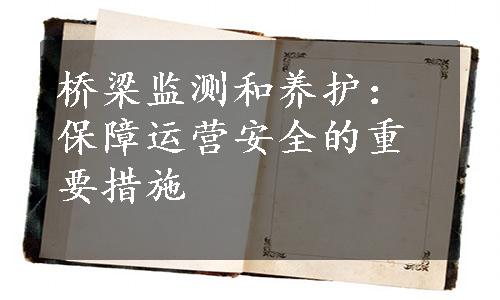 桥梁监测和养护：
保障运营安全的重
要措施